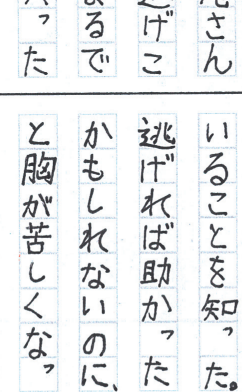 さん
げこ
るで
った
いることを知った。
逃げれば助かった
かもしれないのに、
と胸が苦しくなっ